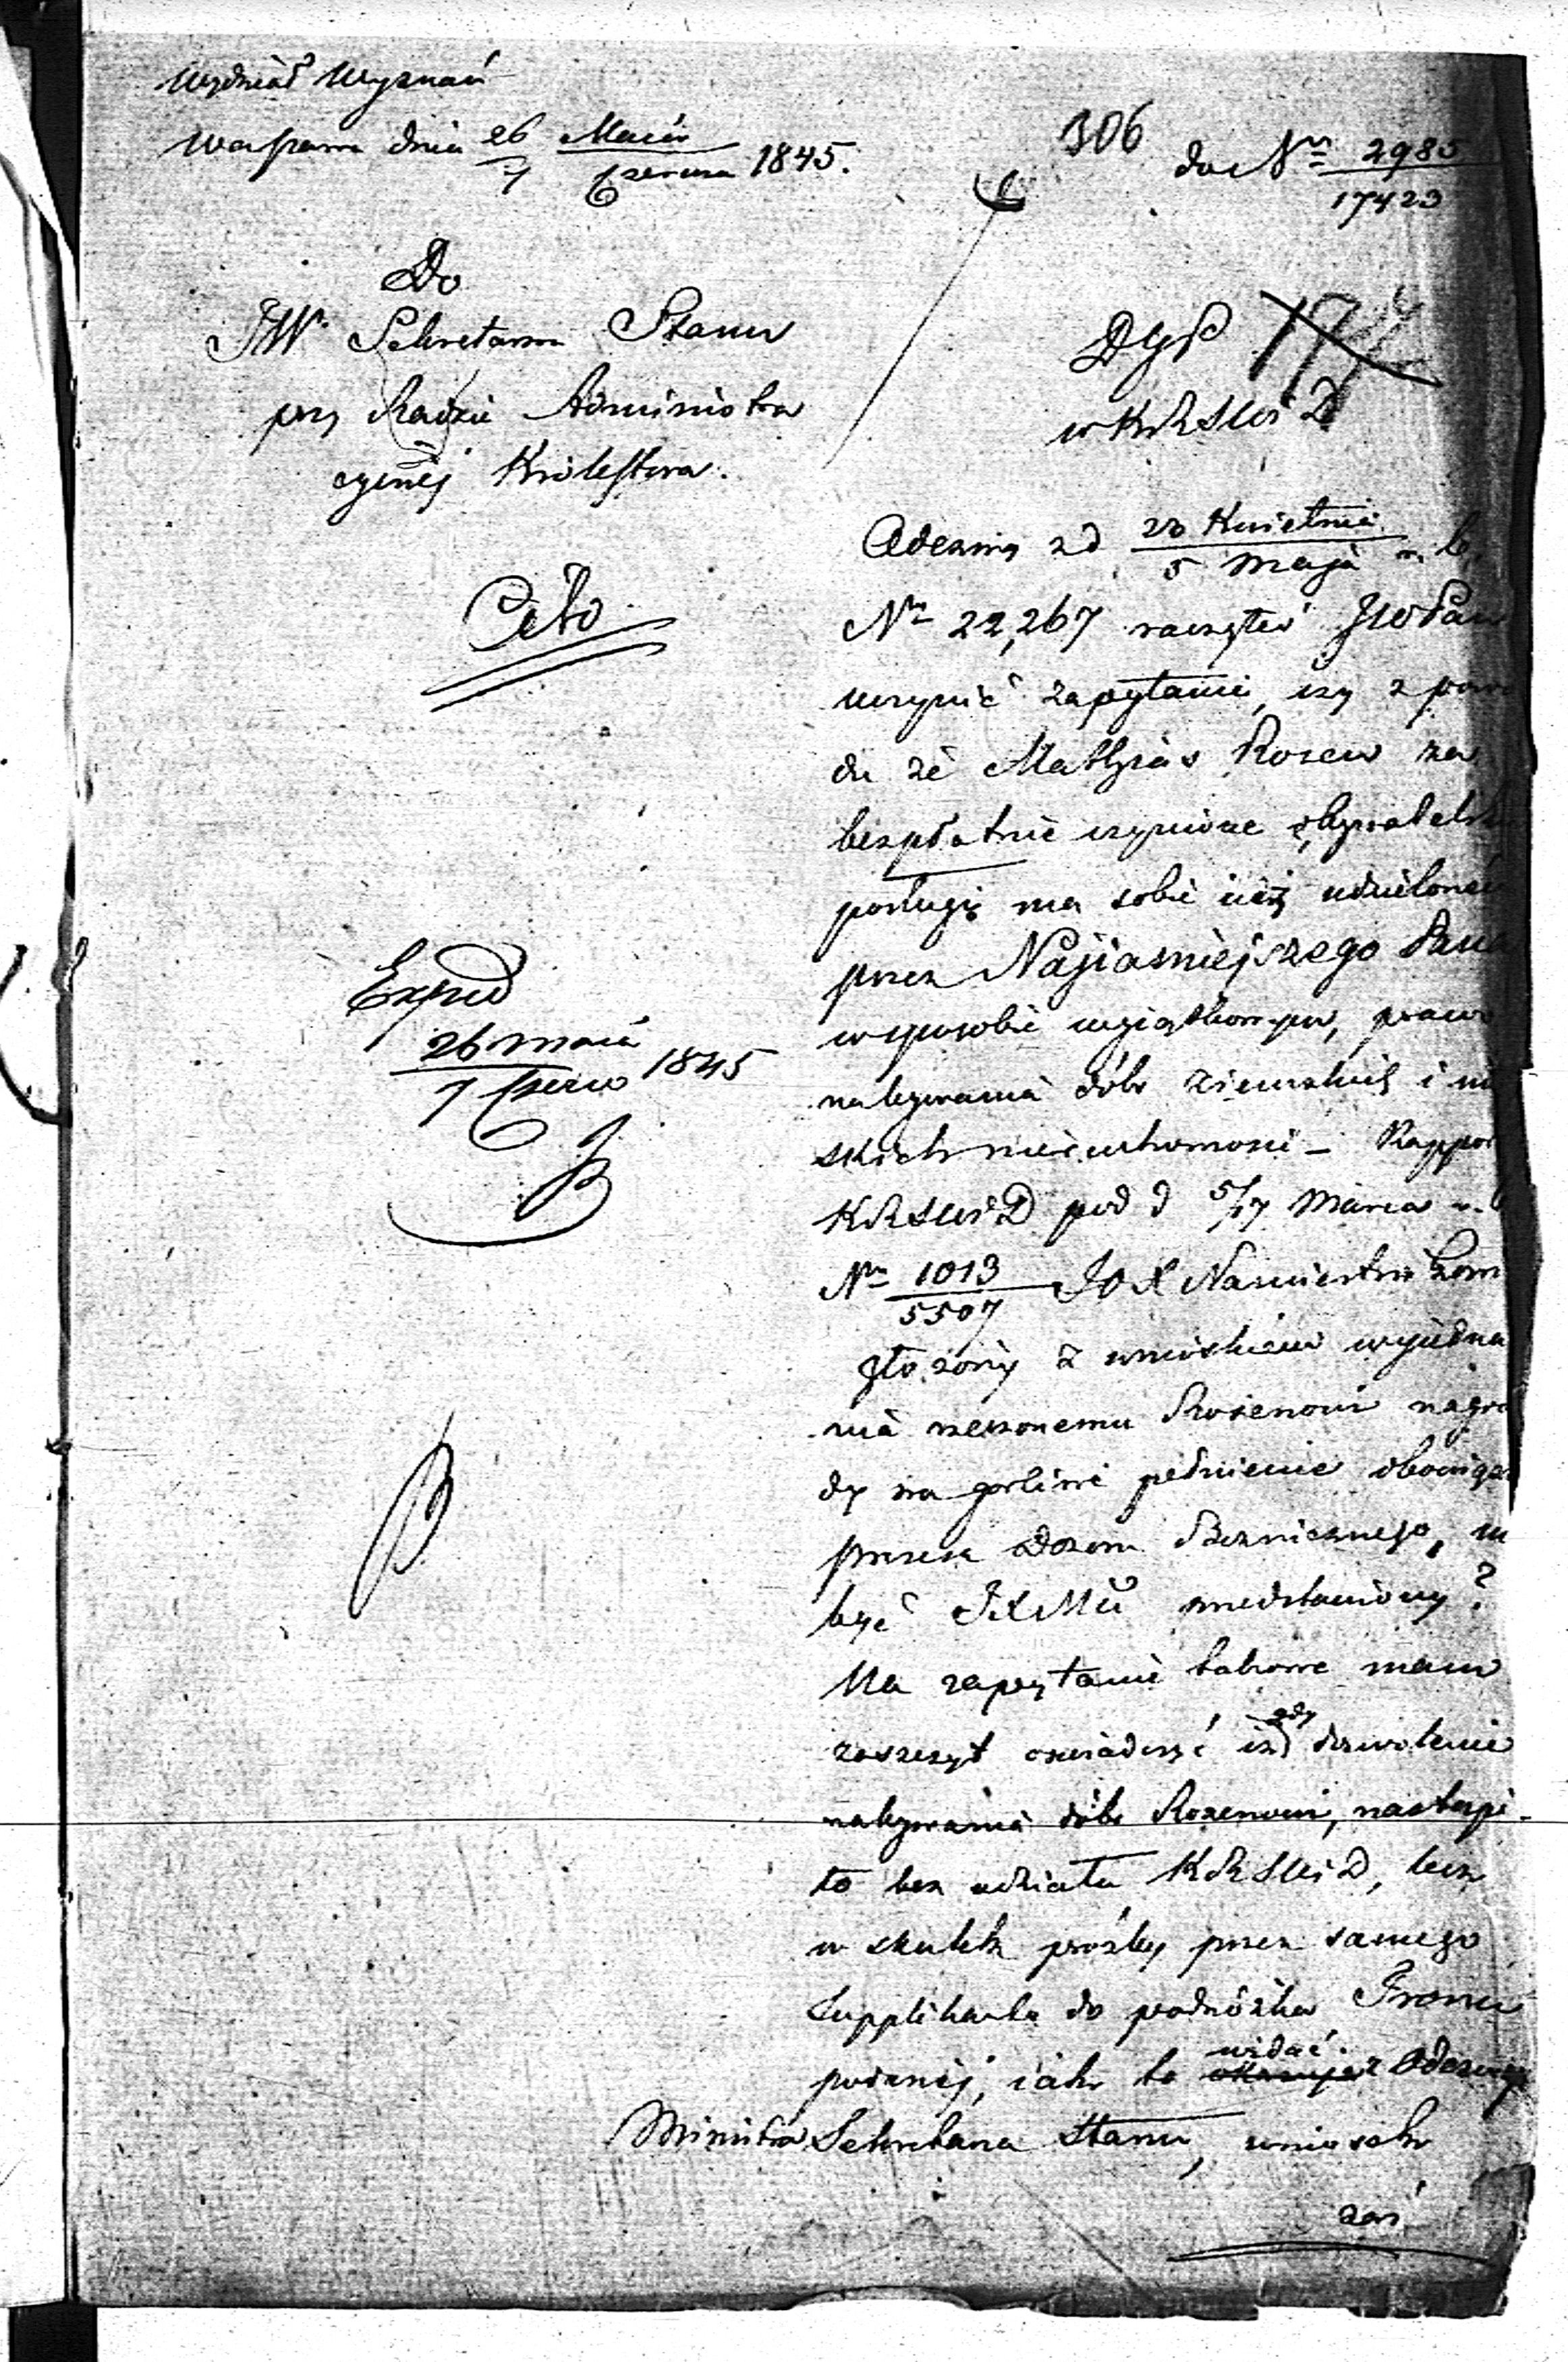 Wydział Wyznań
Warszawa dnia 26 Maia / 7 Czerwca 1845.
306
do Nru 2985 / 17423
Do
JW. Sekretarza Stanu
przy Radzie Administra
cyjnéj Królestwa.
Cito
Exped
26 maia / 7 Czerw 1845
w KRSWiD
Odezwą z d 23 Kwietnia / 5 Maja r. b.
Nr 22,267 raczyłeś JWPan
uczynić zapytanie, czy z powo
du że Mathias Rosen za
bezpłatnie czynione obywatelsk
posługi ma sobie już udzielone
przez Najjaśniejszego Pana
w sposobie wyjątkowym, prawo
nabywania dóbr ziemskich i mi
skich nieruchomości – Rappor
KRSWiD pod d 5/17 Marca r. b
Nr 1013 / 5507 JO X Namiestni
złożony z wnioskiem wyjedna
nia rzeczonemu Rosenowi nagro
dy za gorliwe pełnienie obowiąz
prezesa Dozoru Bożnicznego, m
być JXMci przedstawiony?
Na zapytanie takowe mam
zaszczyt oświadczyć iż gdy dozwolenie
nabywania dóbr Rosenowi, nastąpi-
ło bez udziału KRSWiD, lecz
w skutek prośby przez samego
Supplikanta do podnóżka Tronu
podanéj, iak to widać z Odezwy
Ministra Sekretarza Stanu, wniosek
zaś